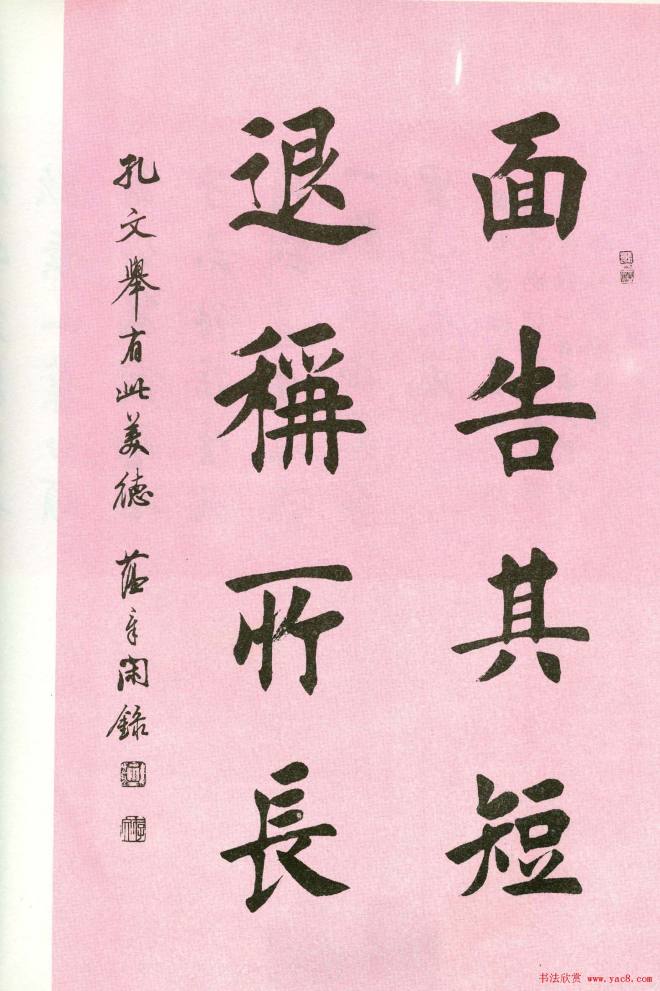 面告其短
退稱所長
孔文舉有此美德 蘊章閑錄
书法欣赏 www.yac8.com